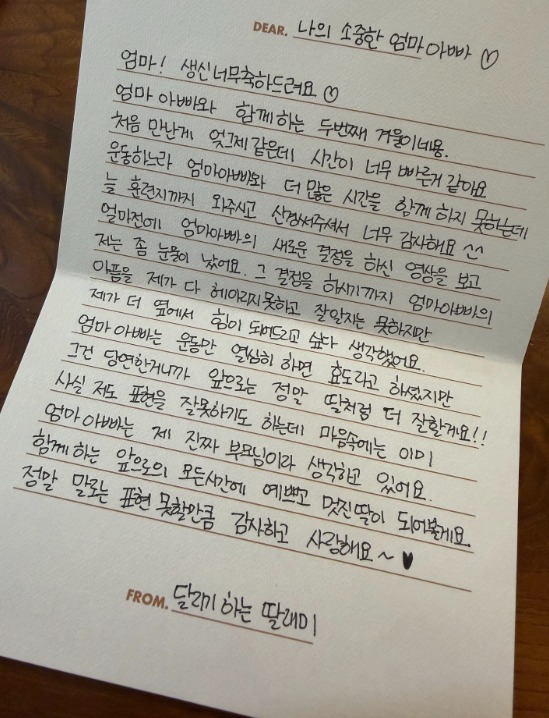 DEAR. 나의 소중한 엄마 아빠 ♡
엄마! 생신너무축하드려요 ♡
엄마 아빠와 함께하는 두번째 겨울이네용.
처음 만난게 엊그제 같은데 시간이 너무 빠른거 같아요
운동하느라 엄마아빠와 더 많은 시간을 함께 하지 못하는데
늘 훈련지까지 와주시고 신경써주셔서 너무 감사해요 ^^
얼마전에 엄마아빠의 새로운 결정을 하신 영상을 보고
저는 좀 눈물이 났어요. 그 결정을 하시기까지 엄마아빠의
아픔을 제가 다 헤아리지못하고 잘알지는 못하지만
제가 더 옆에서 힘이 되어드리고 싶다 생각했어요.
엄마 아빠는 운동만 열심히 하면 효도라고 하셨지만
그건 당연한거니까 앞으로는 정말 딸처럼 더 잘할게요!!
사실 저도 표현을 잘못하기도 하는데 마음속에는 이미
엄마 아빠는 제 진짜 부모님이라 생각하고 있어요.
함께 하는 앞으로의 모든시간에 예쁘고 멋진딸이 되어볼게요.
정말 말로는 표현 못할만큼 감사하고 사랑해요~ ♥
FROM. 달리기 하는 딸래미